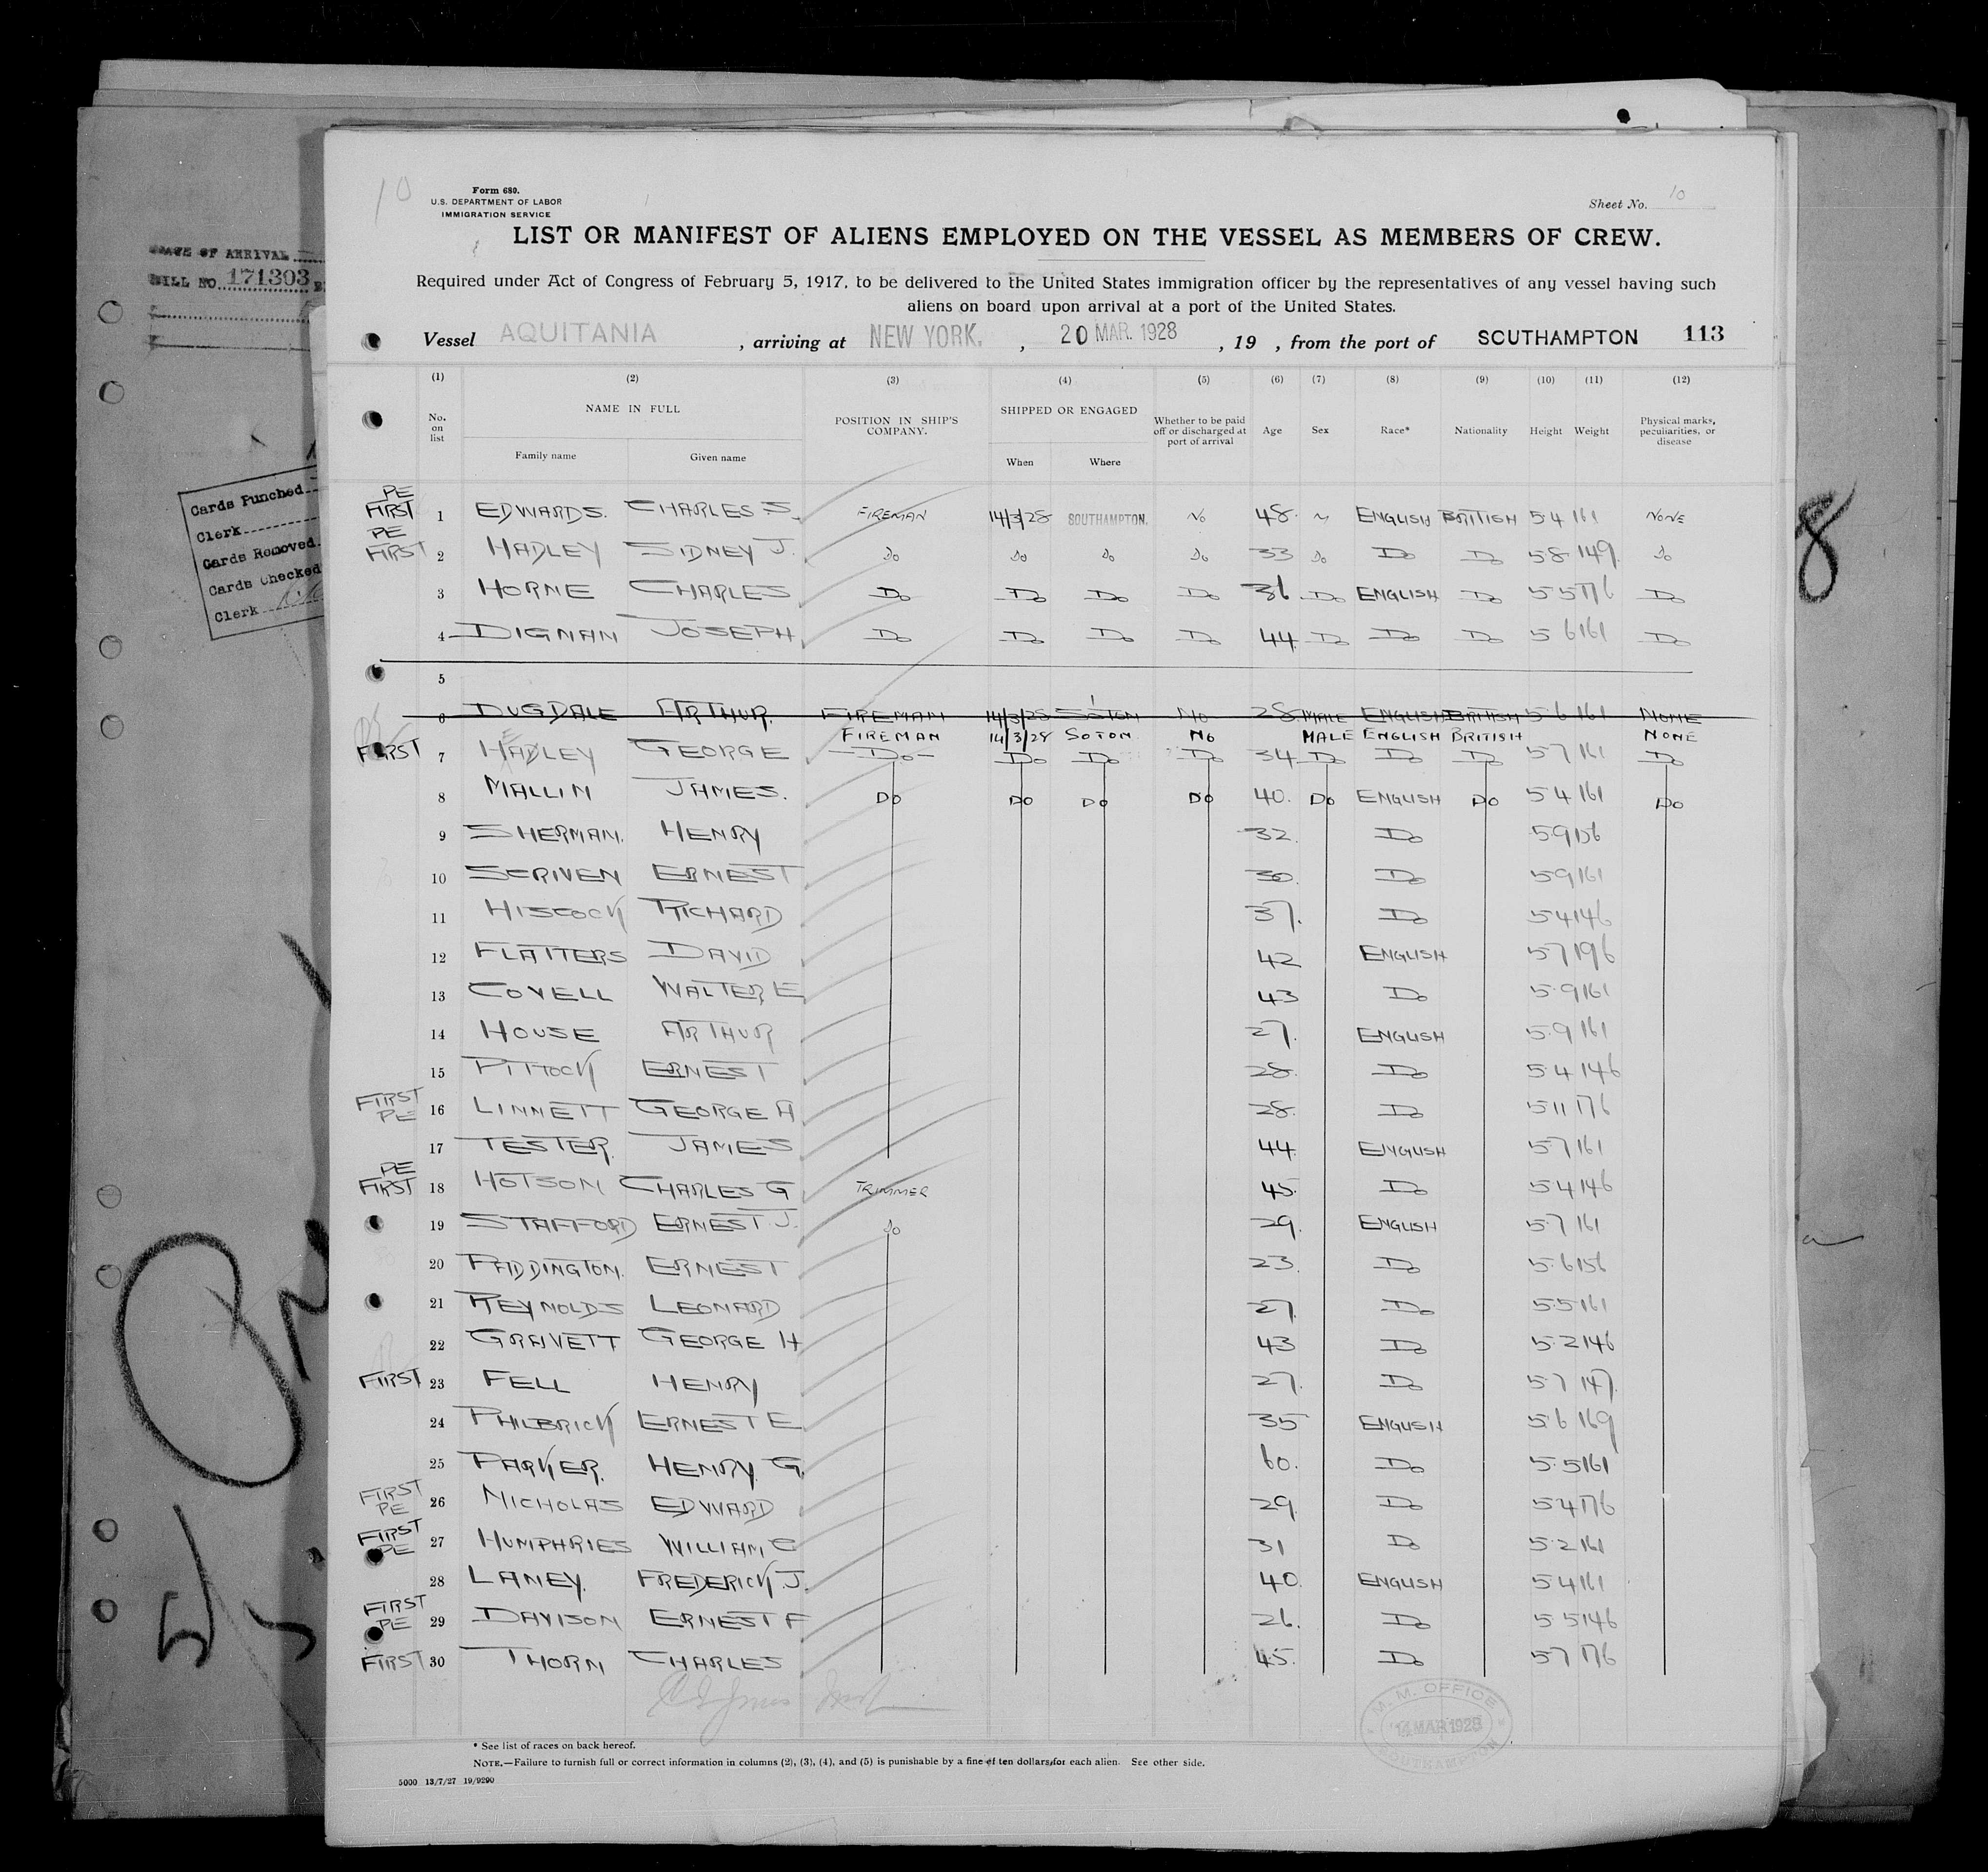 10
Form 680.
U.S. DEPARTMENT OF LABOR
IMMIGRATION SERVICE
Sheet No. 10
LIST OR MANIFEST OF ALIENS EMPLOYED ON THE VESSEL AS MEMBERS OF CREW.
Required under Act of Congress of February 5, 1917, to be delivered to the United States immigration officer by the representatives of any vessel having such
aliens on board upon arrival at a port of the United States.
Vessel AQUITANIA , arriving at NEW YORK. , 20 MAR. 1928 , 19 , from the port of SOUTHAMPTON 113
(1) (2) (3) (4) (5) (6) (7) (8) (9) (10) (11) (12)
No. on list NAME IN FULL Family name Given name POSITION IN SHIP'S COMPANY. SHIPPED OR ENGAGED When Where Whether to be paid off or discharged at port of arrival Age Sex Race* Nationality Height Weight Physical marks, peculiarities, or disease
PE
FIRST 1 EDWARDS. CHARLES S. FIREMAN 14/3/28 SOUTHAMPTON. No 48. M ENGLISH BRITISH 5.4 161 NONE
PE
FIRST 2 HADLEY SIDNEY J. Do Do Do Do 33 Do Do Do 5.8 149. Do
3 HORNE CHARLES Do Do Do Do 36 Do ENGLISH Do 5 5 176 Do
4 DIGNAN JOSEPH Do Do Do Do 44. Do Do Do 5 6 161 Do
5
6 DUGDALE ARTHUR. FIREMAN 14/3/28 SOTON No 28. MALE ENGLISH BRITISH 5 6 161 NONE
FIREMAN 14/3/28 SOTON No MALE ENGLISH BRITISH NONE
FIRST 7 HADLEY GEORGE Do Do Do Do 34 Do Do Do 5 7 161 Do
8 MALLIN JAMES. Do Do Do Do 40. Do ENGLISH Do 5 4 161 Do
9 SHERMAN. HENRY 32. Do 5.9 156
10 SCRIVEN ERNEST 30. Do 5 9 161
11 HISCOCK RICHARD 37. Do 5 4 146
12 FLATTERS DAVID 42 ENGLISH 5 7 196
13 COVELL WALTER E 43 Do 5.9 161
14 HOUSE ARTHUR 27. ENGLISH 5.9 161
15 PITTOCK ERNEST 28. Do 5.4 146
FIRST
PE 16 LINNETT GEORGE A 28. Do 5 11 176
17 TESTER. JAMES 44. ENGLISH 5.7 161
PE
FIRST 18 HOTSON CHARLES G TRIMMER 45. Do 5.4 146
19 STAFFORD ERNEST J. Do 29. ENGLISH 5.7 161
20 PADDINGTON. ERNEST 23. Do 5.6 156
21 REYNOLDS LEONARD 27. Do 5.5 161
22 GRAVETT GEORGE H 43 Do 5.2 146
FIRST 23 FELL HENRY 27. Do 5.7 147.
24 PHILBRICK ERNEST E 35 ENGLISH 5.6 169
25 PARKER. HENRY. G. 60. Do 5.5 161
FIRST
PE 26 NICHOLAS EDWARD 29. Do 5 4 176
FIRST
PE 27 HUMPHRIES WILLIAM C 31 Do 5.2 161
28 LANEY. FREDERICK. J. 40. ENGLISH 5 4 161
FIRST
PE 29 DAVISON ERNEST F 26. Do 5 5 146
FIRST 30 THORN CHARLES 45. Do 5 7 176
M. M. OFFICE
14 MAR 1928
SOUTHAMPTON
* See list of races on back hereof.
NOTE.—Failure to furnish full or correct information in columns (2), (3), (4), and (5) is punishable by a fine of ten dollars for each alien. See other side.
5000 13/7/27 19/9290
OF ARRIVAL
BILL NO. 171303
Cards Punched
Clerk
Cards Removed
Cards Checked
Clerk
8